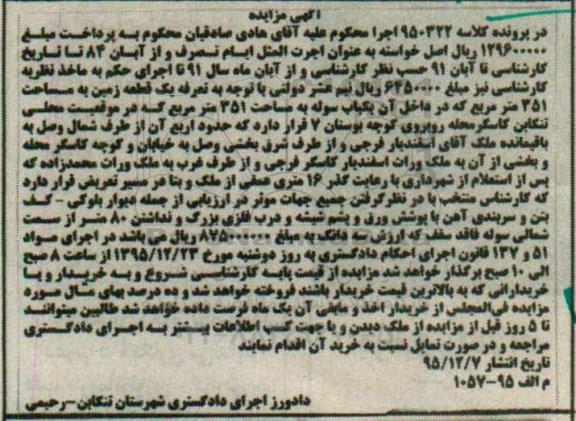 آگهی مزایده
در پرونده کلاسه ۹۵۰۳۲۲ اجرا محکوم علیه آقای هادی صادقیان محکوم به پرداخت مبلغ
۱۲۹۶۰۰۰۰۰ ریال اصل خواسته به عنوان اجرت المثل ایام تصرف و از آبان ۸۴ تا تاریخ
کارشناسی تا آبان ۹۱ حسب نظر کارشناسی و از آبان ماه سال ۹۱ تا اجرای حکم به ماخذ نظریه
کارشناسی نیز مبلغ ۶۴۵۰۰۰۰ ریال نیم عشر دولتی با توجه به تعرفه یک قطعه زمین به مساحت
۳۵۱ متر مربع که در داخل آن یکباب سوله به مساحت ۳۵۱ متر مربع که در موقعیت محلی
تنکابن کاسگرمحله روبروی کوچه بوستان ۷ قرار دارد که حدود اربع آن از طرف شمال وصل به
باقیمانده ملک آقای اسفندیار فرجی و از طرف شرق بخشی وصل به خیابان و کوچه کاسگر محله
و بخشی از آن به ملک وراث اسفندیار کاسگر فرجی و از طرف غرب به ملک وراث محمدزاده که
پس از استعلام از شهرداری با رعایت گذر ۱۶ متری عمقی از ملک و بنا در مسیر تعریض قرار دارد
که کارشناس منتخب با در نظر گرفتن جمیع جهات موثر در ارزیابی از جمله دیوار بلوکی - کف
بتن و سربندی آهن با پوشش ورق و پشم شیشه و درب فلزی بزرگ و نداشتن ۸۰ متر از سمت
شمالی سوله فاقد سقف که ارزش سه دانگ به مبلغ ۸۷۵۰۰۰۰۰۰ ریال می باشد در اجرای مواد
۵۱ و ۱۳۷ قانون اجرای احکام دادگستری به روز دوشنبه مورخ ۱۳۹۵/۱۲/۲۳ از ساعت ۸ صبح
الی ۱۰ صبح برگذار خواهد شد مزایده از قیمت پایه کارشناسی شروع و به خریدار و یا
خریدارانی که به بالاترین قیمت خریدار باشند فروخته خواهد شد و ده درصد بهای مال مورد
مزایده فی‌المجلس از خریدار اخذ و مابقی آن یک ماه فرصت داده خواهد شد طالبین میتوانند
تا ۵ روز قبل از مزایده از ملک دیدن و یا جهت کسب اطلاعات بیشتر به اجرای دادگستری
مراجعه و در صورت تمایل نسبت به خرید آن اقدام نمایند
تاریخ انتشار ۹۵/۱۲/۷
م الف ۹۵-۱۰۵۷
دادورز اجرای دادگستری شهرستان تنکابن-رحیمی